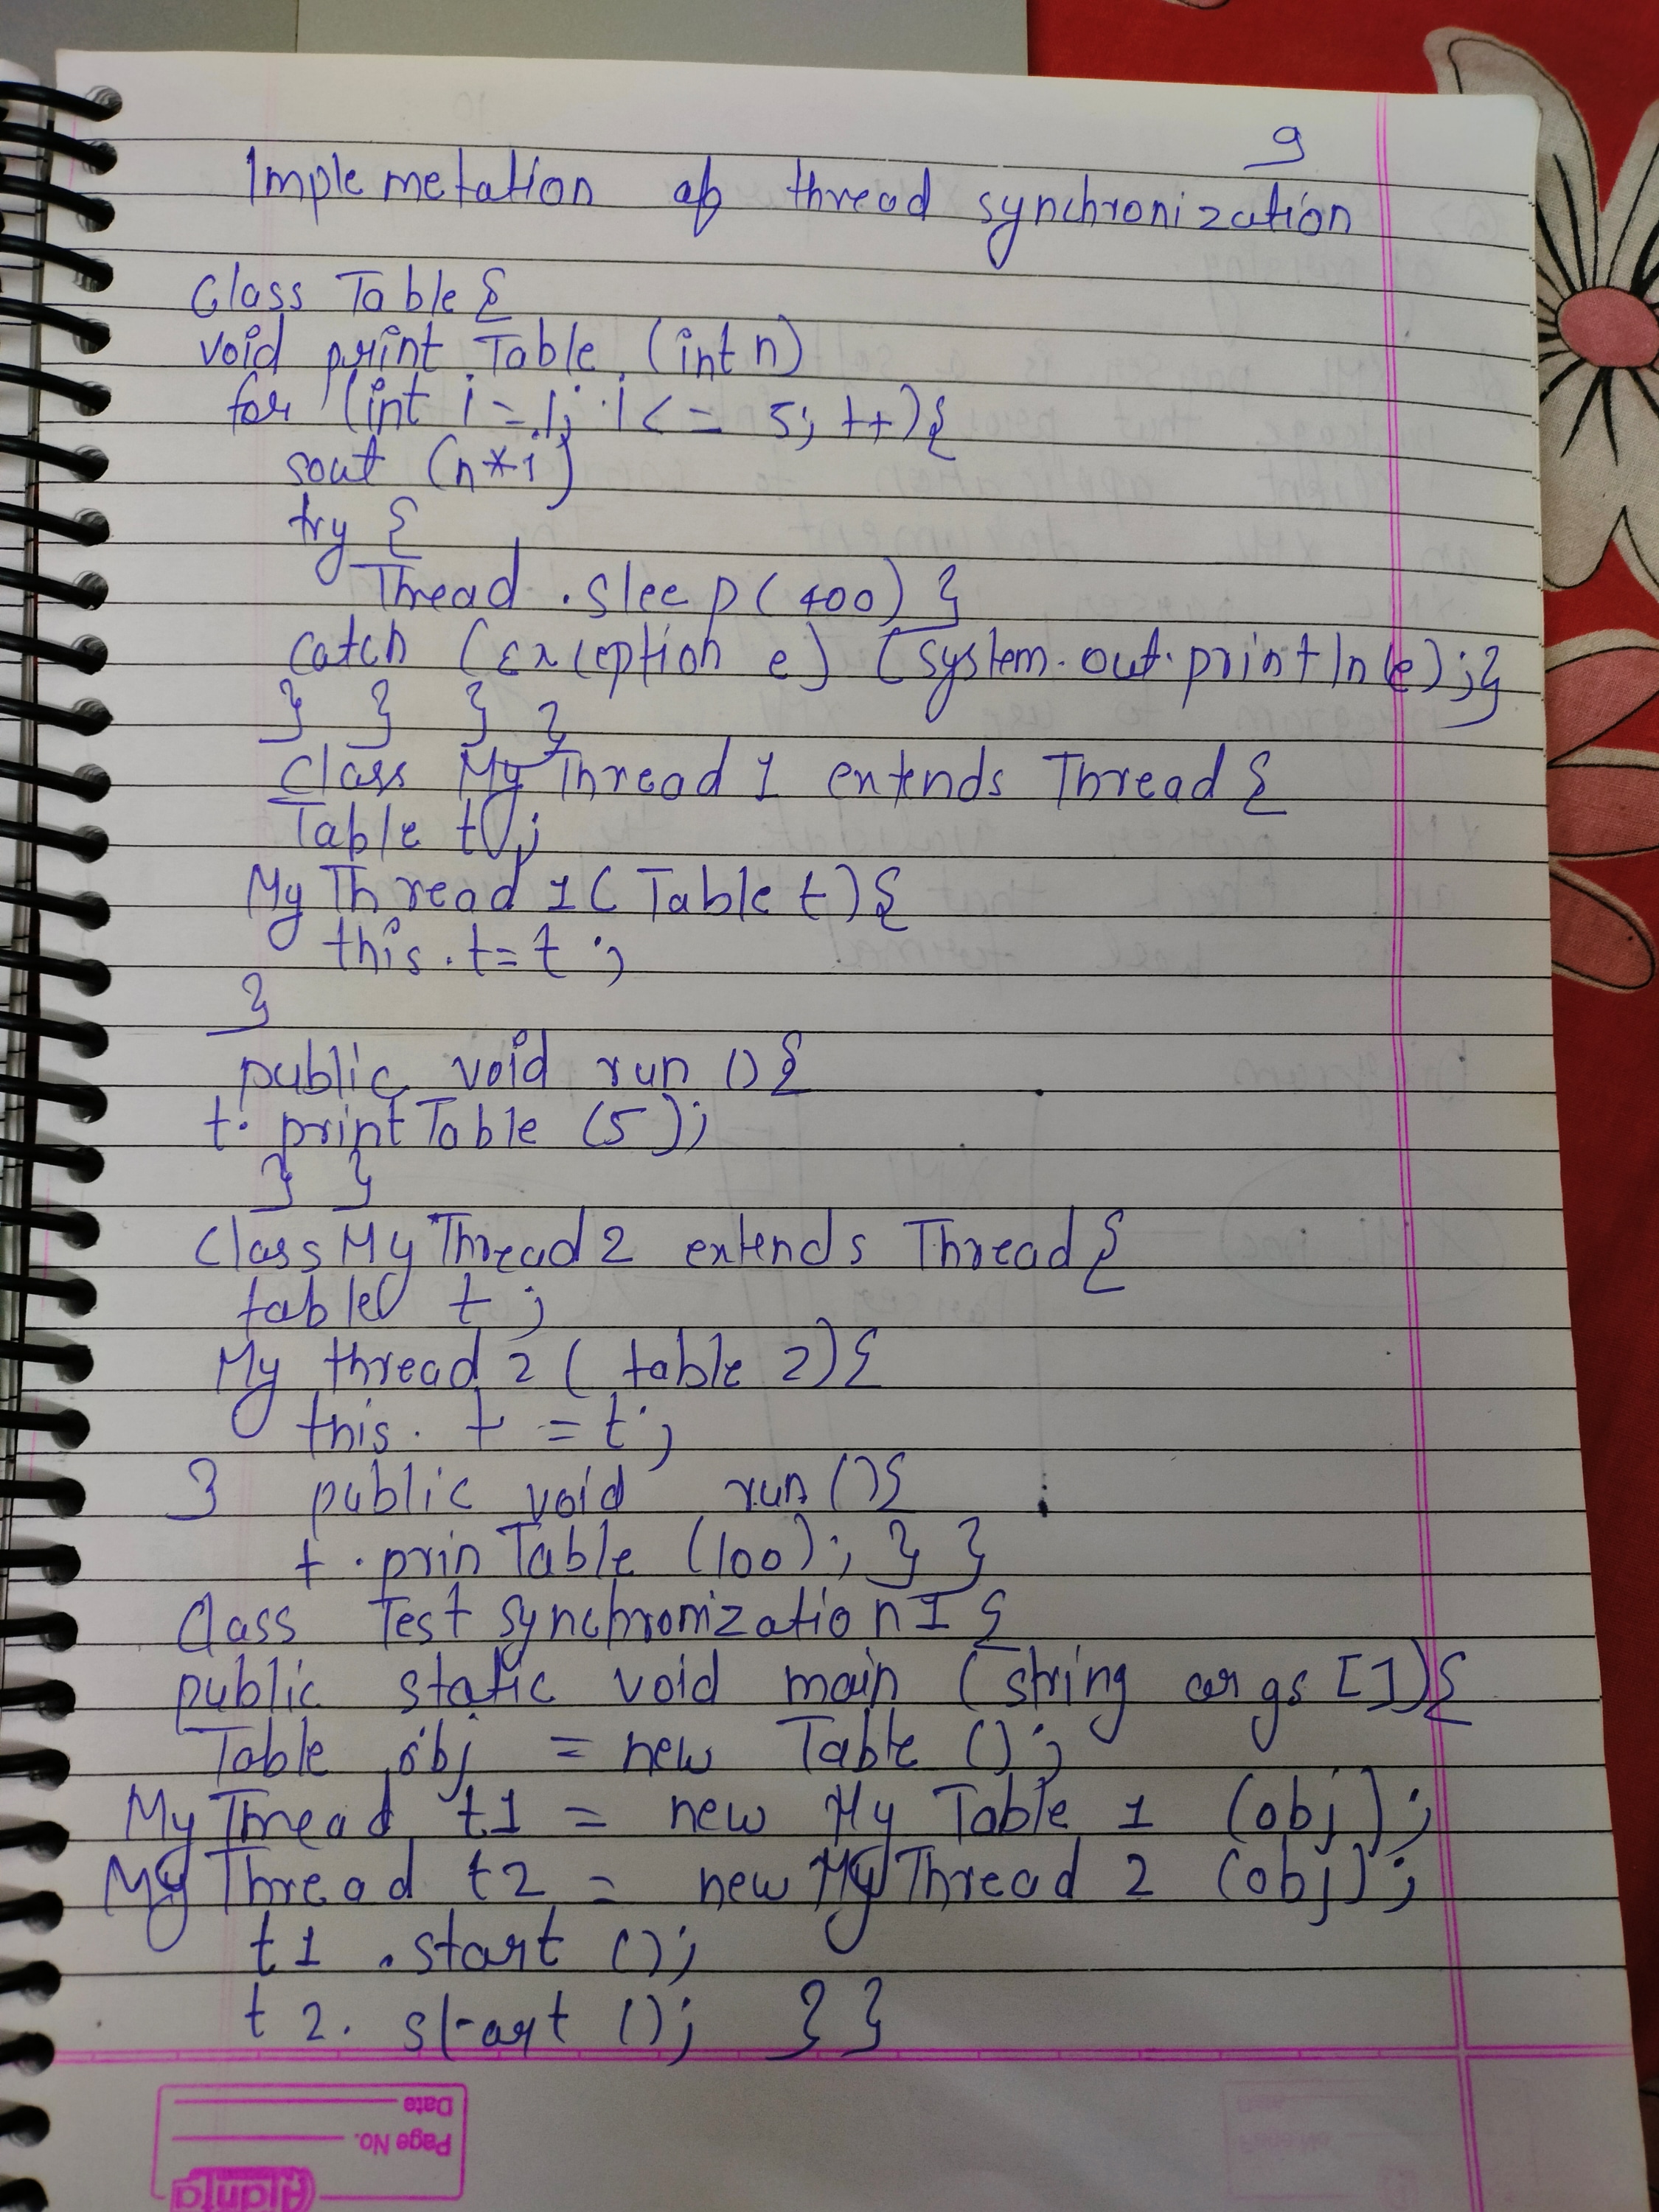 9
Implemetation of thread synchronization
Class Table {
void print Table (int n)
for (int i = 1; i <= 5; ++) {
sout (n*i)
try {
Thread . sleep (400) }
catch (Exception e) {System.out.println(e);}
} } } }
Class My Thread 1 extends Thread {
Table t;
My Thread 1 ( Table t) {
this . t = t ;
}
public void run () {
t. print Table (5);
} }
Class My Thread 2 extends Thread {
table t ;
My thread 2 ( table 2) {
this . t = t ;
} public void run () {
t . prin Table (100); } }
Class Test synchronization 1 {
public static void main (string args []) {
Table obj = new Table ();
My Thread t1 = new My Table 1 (obj);
My Thread t2 = new My Thread 2 (obj);
t1 . start ();
t2. start (); } }
Date
Page No.